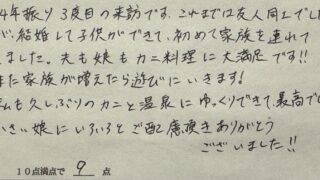 4年振り3度目の来訪です。これまでは友人同士でした
が、結婚して子供ができて、初めて家族を連れて
ました。夫も娘もカニ料理に大満足です!!
また家族が増えたら遊びにいきます!
私も久しぶりのカニと温泉にゆっくりできて、最高でし
小さい娘にいろいろとご配慮頂きありがとう
ございました!!
10点満点で 9 点